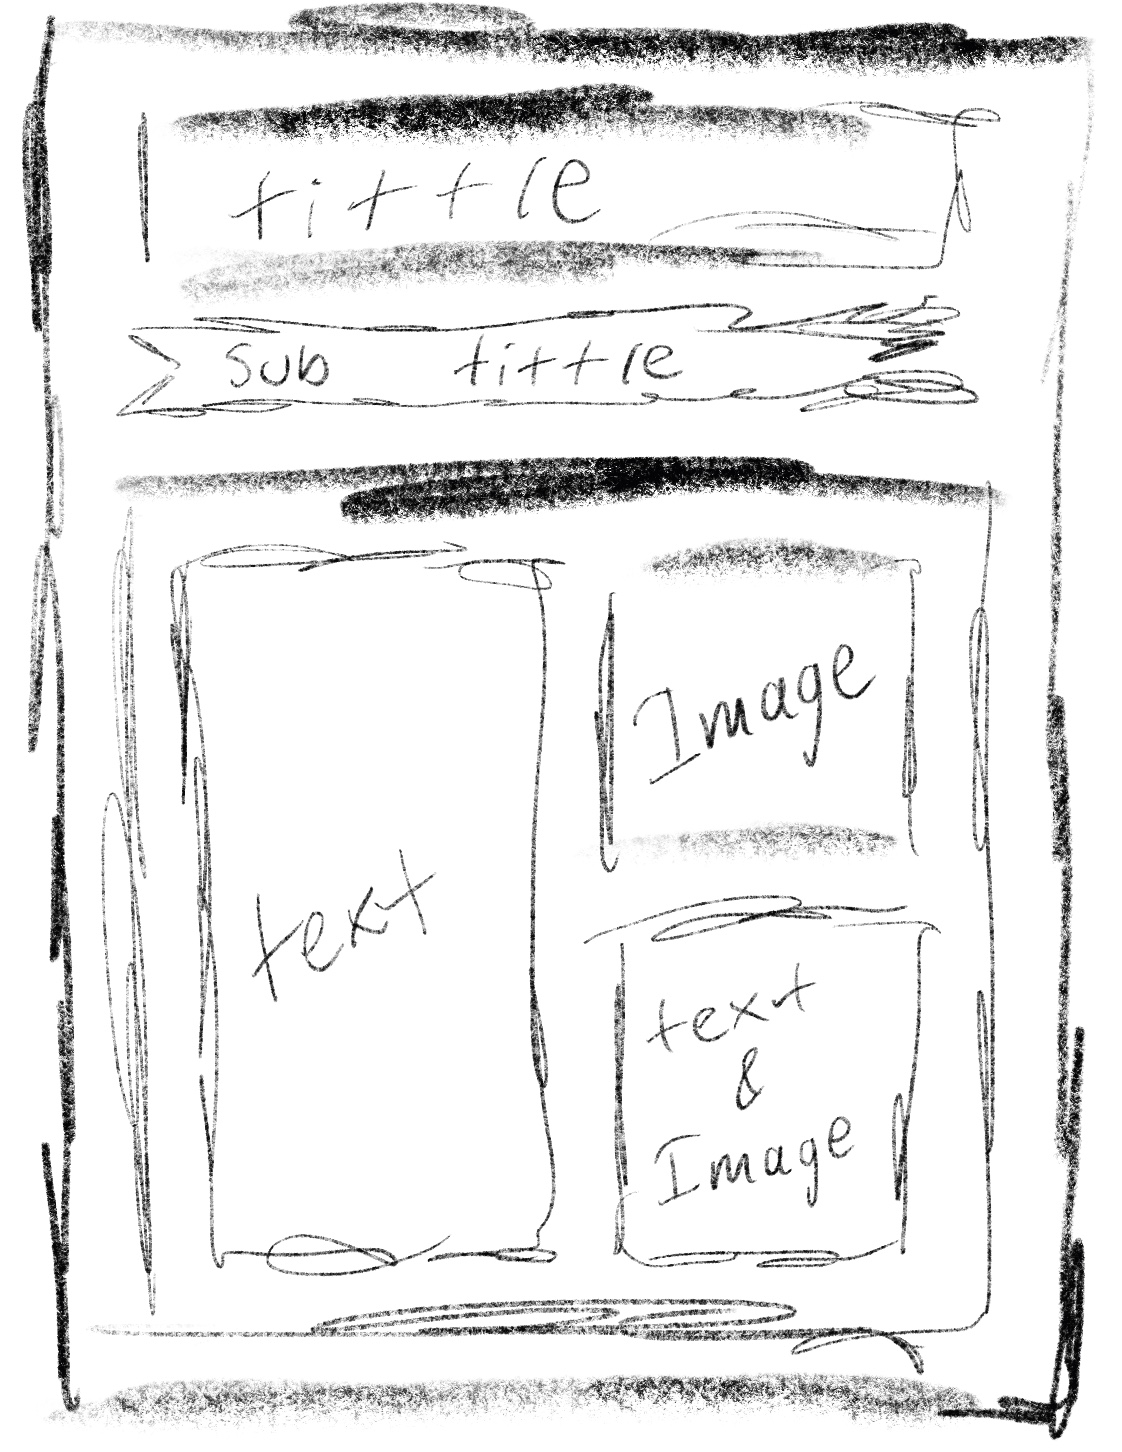 tittle
Sub tittle
text
Image
text
&
Image